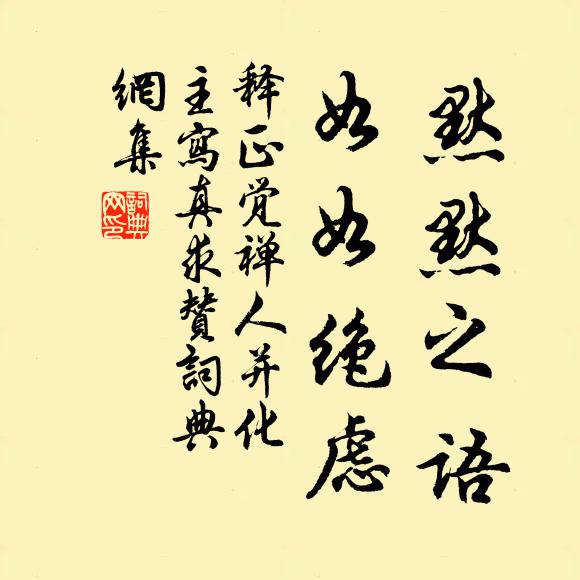 默默之语
如如绝虑
释正觉禅人并化
主寫真求賛詞典
網集
詞典
网印